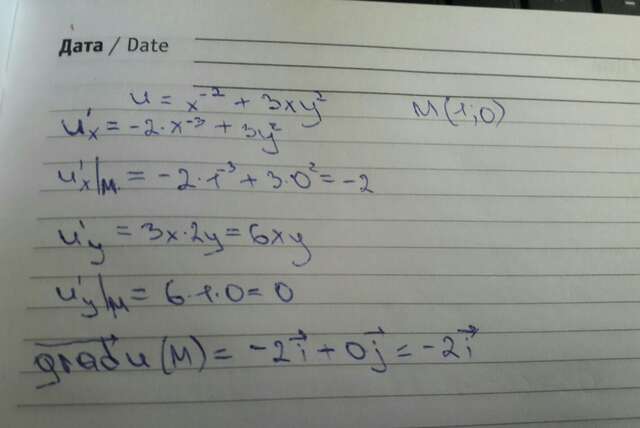 Дата / Date
u = x⁻² + 3xy² M(1;0)
u'ₓ = -2·x⁻³ + 3y²
u'ₓ|ₘ = -2·1⁻³ + 3·0² = -2
u'y = 3x·2y = 6xy
u'y|ₘ = 6·1·0 = 0
grad u(M) = -2i⃗ + 0j⃗ = -2i⃗